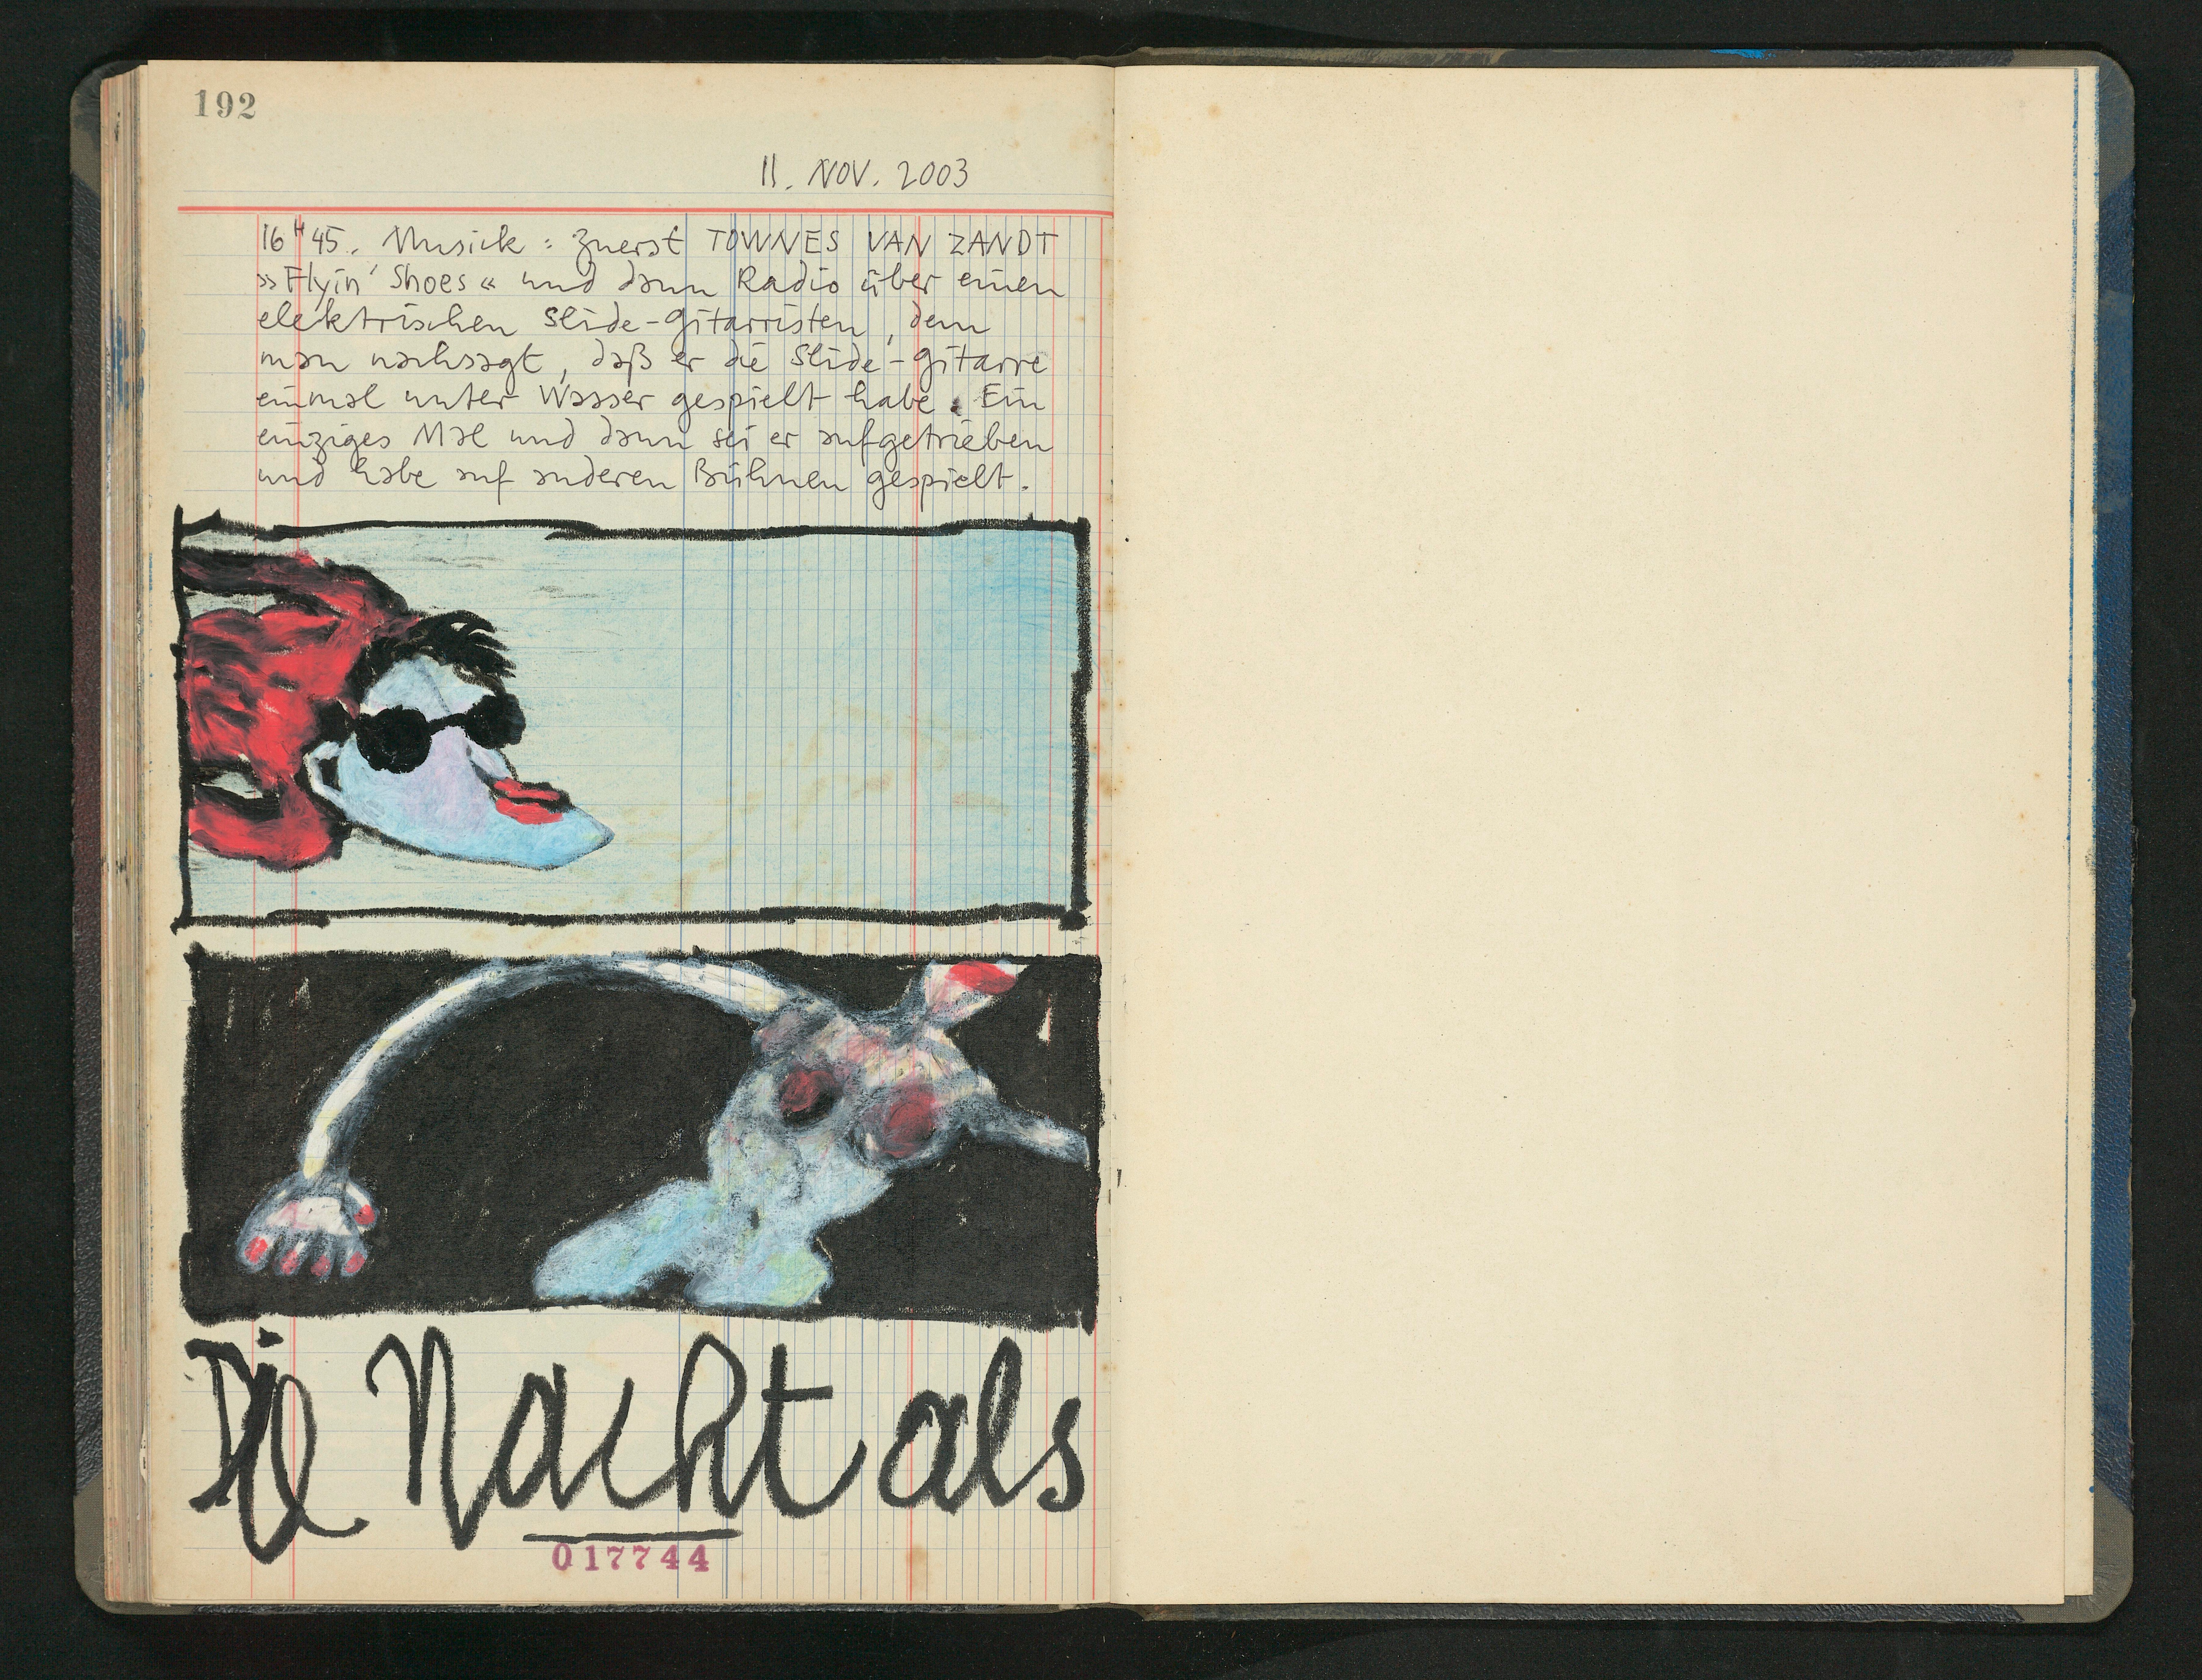 192
11. NOV. 2003
16H45. Musick : Zuerst TOWNES VAN ZANDT
»Flyin' Shoes« und dann Radio über einen
elektrischen Slide-Gitarristen, dem
man nachsagt, daß er die Slide-Gitarre
einmal unter Wasser gespielt habe. Ein
einziges Mal und dann sei er aufgetrieben
und habe auf anderen Bühnen gespielt.
Die Nacht als
017744